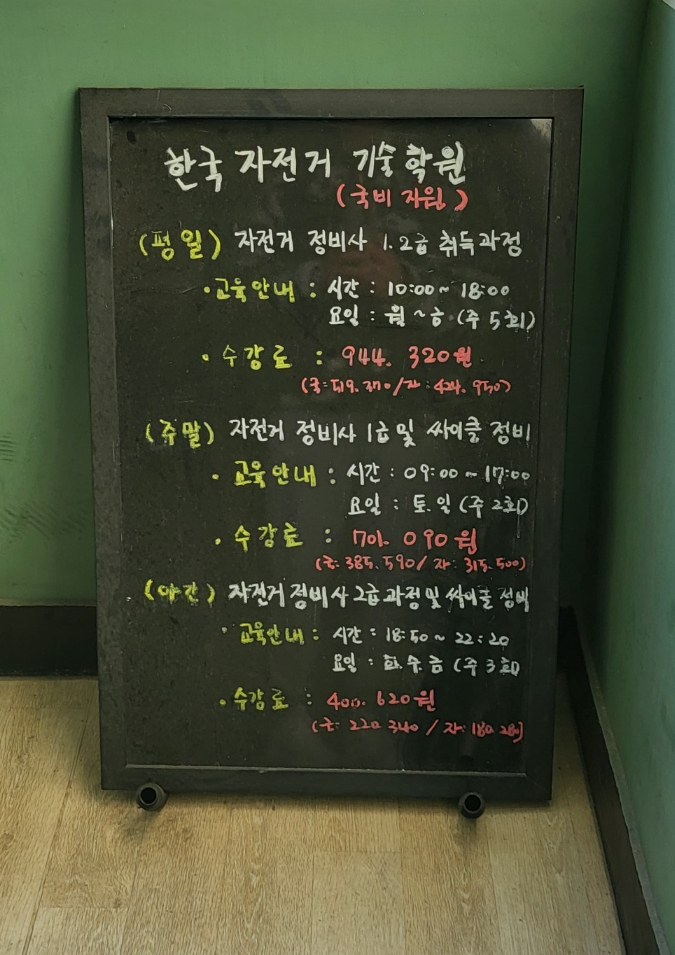 한국 자전거 기술학원
(국비 지원)
(평일) 자전거 정비사 1.2급 취득과정
·교육안내 : 시간 : 10:00~ 18:00
요일 : 월~금 (주 5회)
·수강료 : 944.320원
(국:519.370/자:424.950)
(주말) 자전거 정비사 1급 및 싸이클 정비
·교육안내 : 시간 : 09:00~17:00
요일 : 토.일 (주 2회)
·수강료 : 701.090원
(국:385.590/자:315.500)
(야간) 자전거 정비사 2급과정 및 싸이클 정비
·교육안내 : 시간 : 18:50~22:20
요일 : 화.수.금 (주 3회)
·수강료 : 400.620원
(국:220.340/자:180.280)